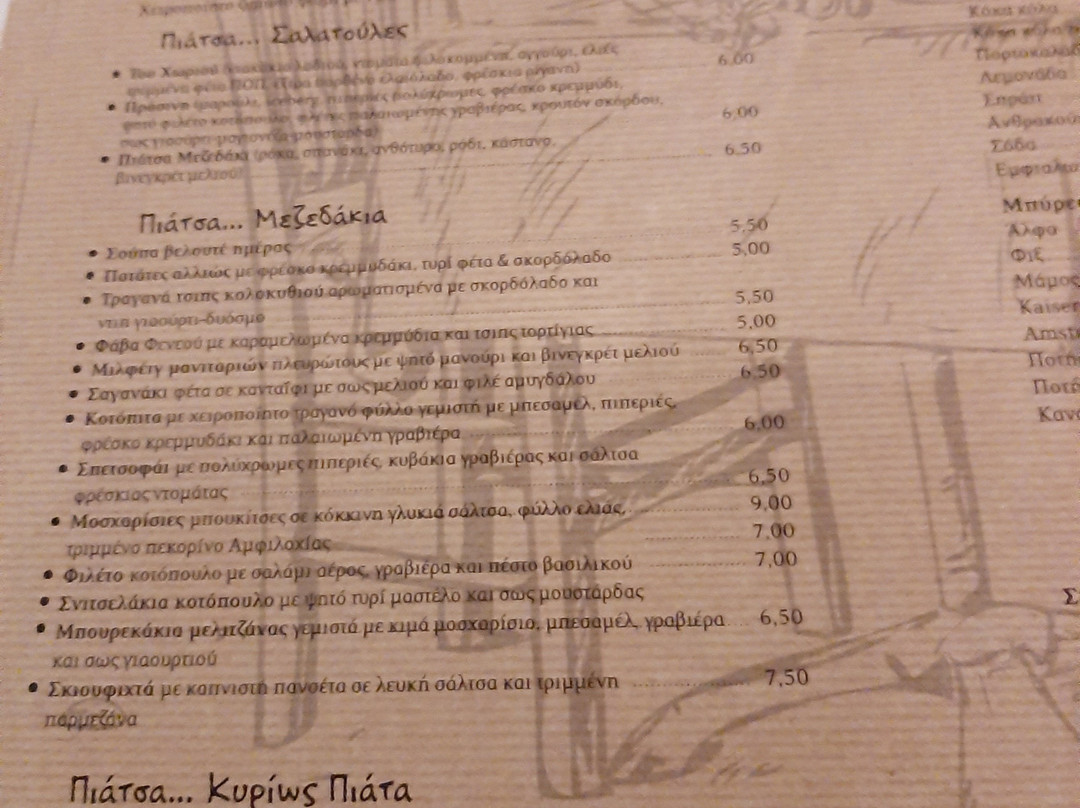 Πιάτσα... Σαλατούλες
φέτα ΠΟΠ, ελαιόλαδο, φρέσκια ρίγανη) 6,00
φρέσκο κρεμμύδι,
παλαιωμένης γραβιέρας, κρουτόν σκόρδου, 6,00
• Πιάτσα Μεζεδάκι (ρόκα, σπανάκι, ανθότυρο, ρόδι, κάστανο, 6,50
βινεγκρέτ μελιού)
Πιάτσα... Μεζεδάκια
• Σούπα βελουτέ ημέρας 5,50
• Πατάτες αλλιώς με φρέσκο κρεμμυδάκι, τυρί φέτα & σκορδόλαδο 5,00
• Τραγανά τσιπς κολοκυθιού αρωματισμένα με σκορδόλαδο και
ντιπ γιαούρτι-δυόσμο 5,50
• Φάβα Φενεού με καραμελωμένα κρεμμύδια και τσιπς τορτίγιας 5,00
• Μιλφέιγ μανιταριών πλευρώτους με ψητό μανούρι και βινεγκρέτ μελιού 6,50
• Σαγανάκι φέτα σε κανταΐφι με σως μελιού και φιλέ αμυγδάλου 6,50
• Κοτόπιτα με χειροποίητο τραγανό φύλλο γεμιστή με μπεσαμέλ, πιπεριές,
φρέσκο κρεμμυδάκι και παλαιωμένη γραβιέρα 6,00
• Σπετσοφάι με πολύχρωμες πιπεριές, κυβάκια γραβιέρας και σάλτσα
φρέσκιας ντομάτας 6,50
• Μοσχαρίσιες μπουκίτσες σε κόκκινη γλυκιά σάλτσα, φύλλο ελιάς, 9,00
τριμμένο πεκορίνο Αμφιλοχίας 7,00
• Φιλέτο κοτόπουλο με σαλάμι αέρος, γραβιέρα και πέστο βασιλικού 7,00
• Σνιτσελάκια κοτόπουλο με ψητό τυρί μαστέλο και σως μουστάρδας
• Μπουρεκάκια μελιτζάνας γεμιστά με κιμά μοσχαρίσιο, μπεσαμέλ, γραβιέρα 6,50
και σως γιαουρτιού
• Σκιουφιχτά με καπνιστή πανσέτα σε λευκή σάλτσα και τριμμένη 7,50
παρμεζάνα
Πιάτσα... Κυρίως Πιάτα
Κόκα κόλα
Λεμονάδα
Σπράιτ
Σόδα
Άλφα
Φιξ
Μάμος
Kaiser